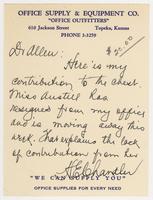 OFFICE SUPPLY & EQUIPMENT CO.
"OFFICE OUTFITTERS"
610 Jackson Street Topeka, Kansas
PHONE 3-3259
$25.00
Dr Allen:
Here is my
contribution to the chest.
Miss Austill Rea
resigned from my office
and is moving away this
week. That explains the lack
of contribution from her
H E Chandler
"WE CAN SUPPLY YOU"
OFFICE SUPPLIES FOR EVERY NEED